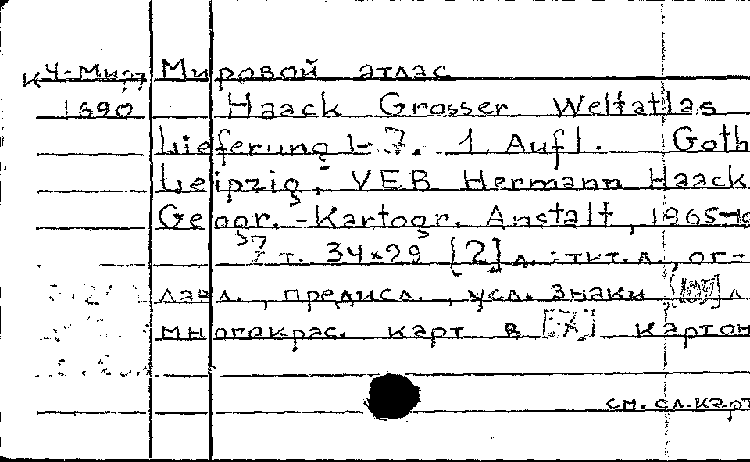 К Ч-Мир Мировой атлас
1690 Haack Grosser Weltatlas
Lieferung 1-7. 1. Aufl. Goth
Leipzig, VEB Hermann Haack
Geogr.-Kartogr. Anstalt, 1965-19
7 т. 34×29 [2] л.: тит. л., ог-
лавл., предисл., усл. знаки л
многокрас. карт в картон
см. сл. карт